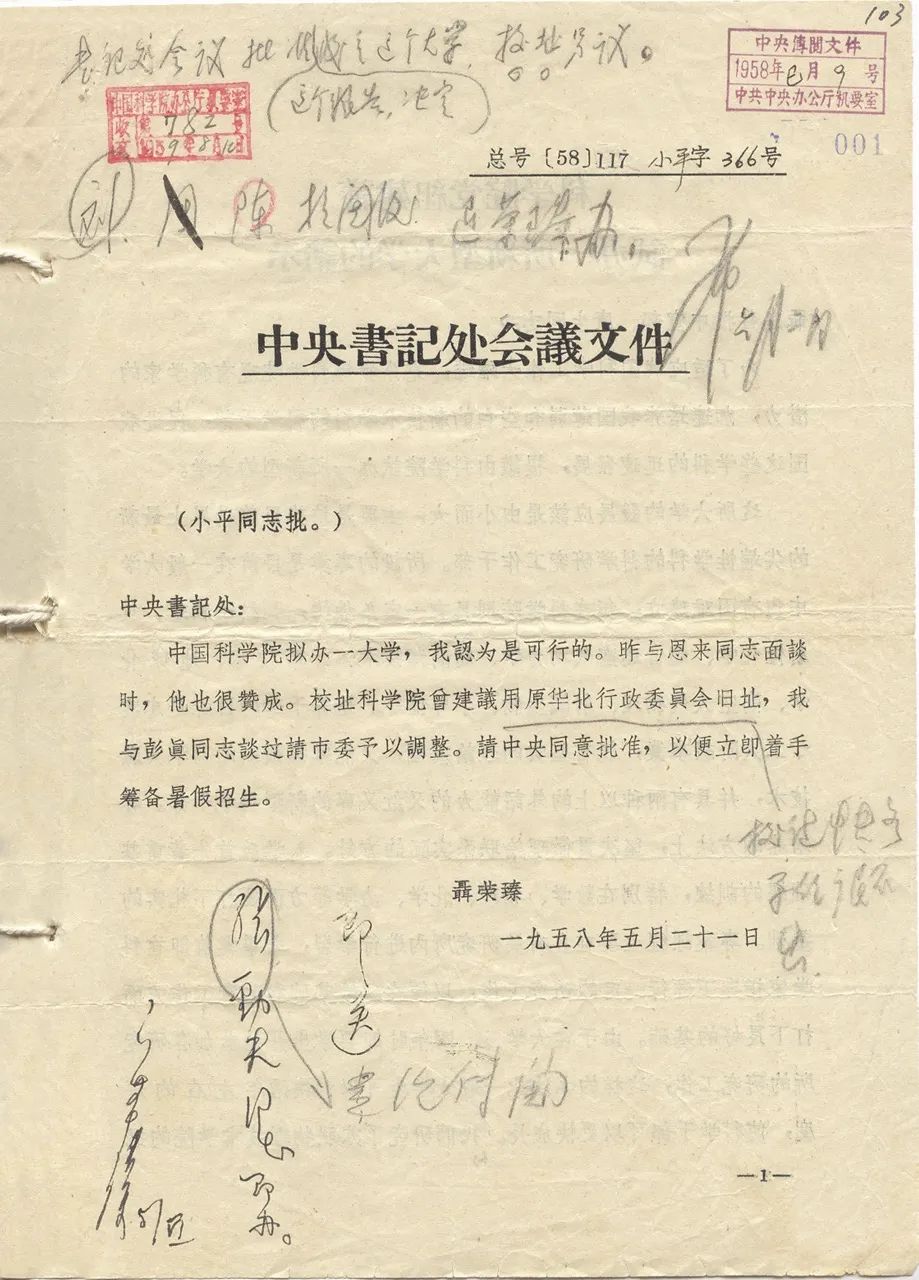 103
书记处会议批准成立这个大学，校址另议。
这个报告，决定
中央傳閱文件
1958年 月9号
中共中央办公厅机要室
中国科学院办公厅
收 第782号
1959年8月10日
001
总号〔58〕117 小平字366号
刘 周 陈 退荣臻办。
六月二日
中央書記处会議文件
（小平同志批。）
中央書記处：
中国科学院拟办一大学，我認为是可行的。昨与恩来同志面談
时，他也很赞成。校址科学院曾建議用原华北行政委員会旧址，我
与彭眞同志談过請市委予以調整。請中央同意批准，以便立卽着手
筹备暑假招生。
聶荣臻
一九五八年五月二十一日
即送
張勁夫同志即办。
—1—